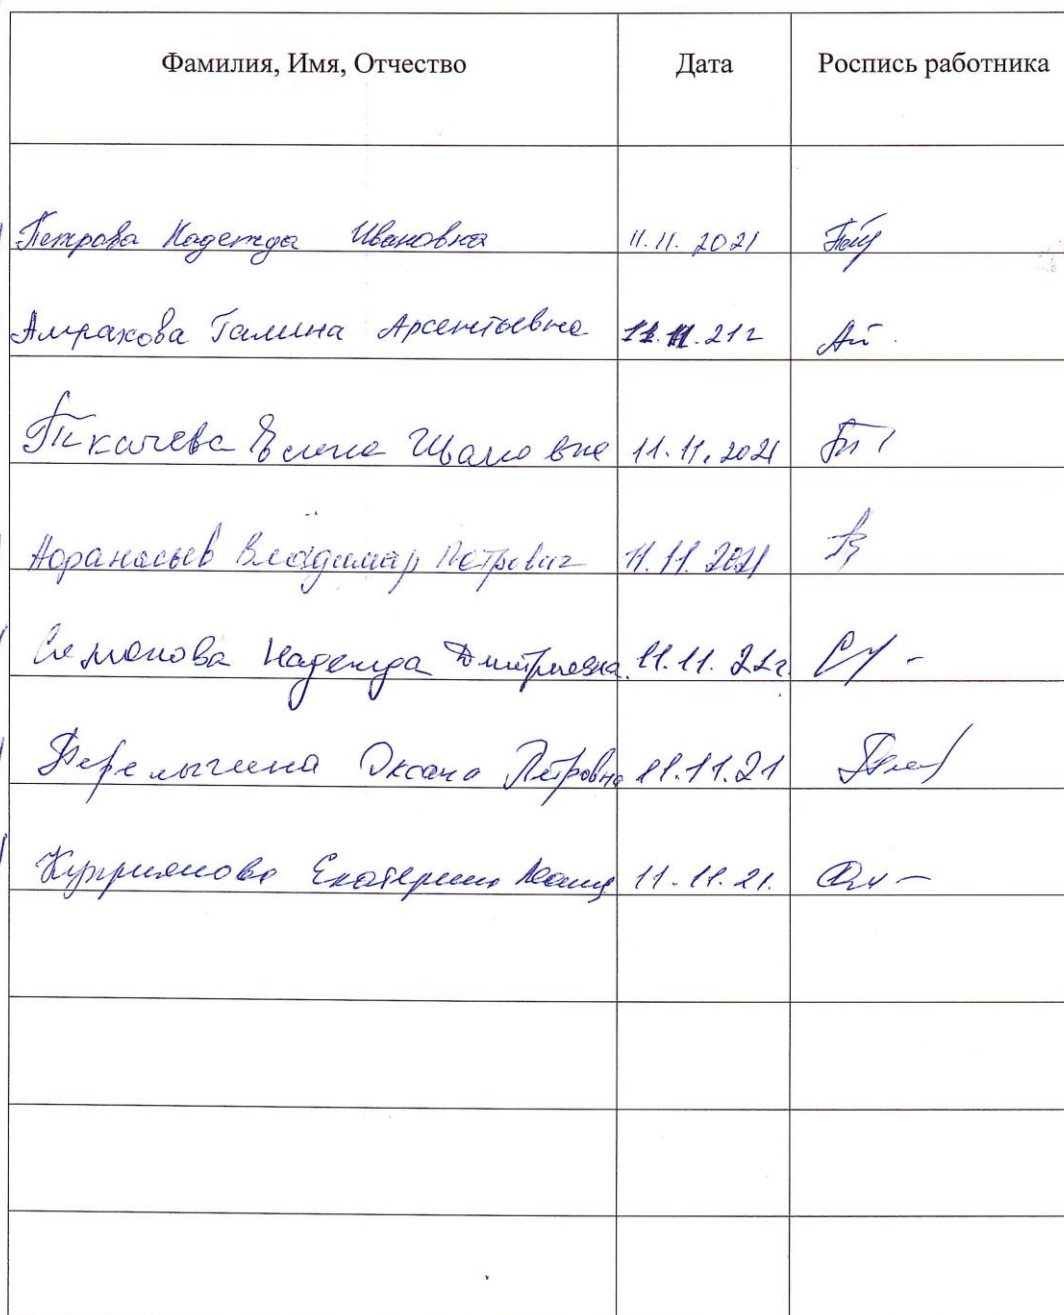 Фамилия, Имя, Отчество Дата Роспись работника
Петрова Надежда Ивановна 11.11.2021
Амрахова Галина Арсентьевна 11.11.21г
Ткачева Елена Ивановна 11.11.2021
Афанасьев Владимир Петрович 11.11.2021
Семенова Надежда Дмитриевна 11.11.21г.
Оксана Петровна 11.11.21
Куприянова Екатерина 11.11.21.